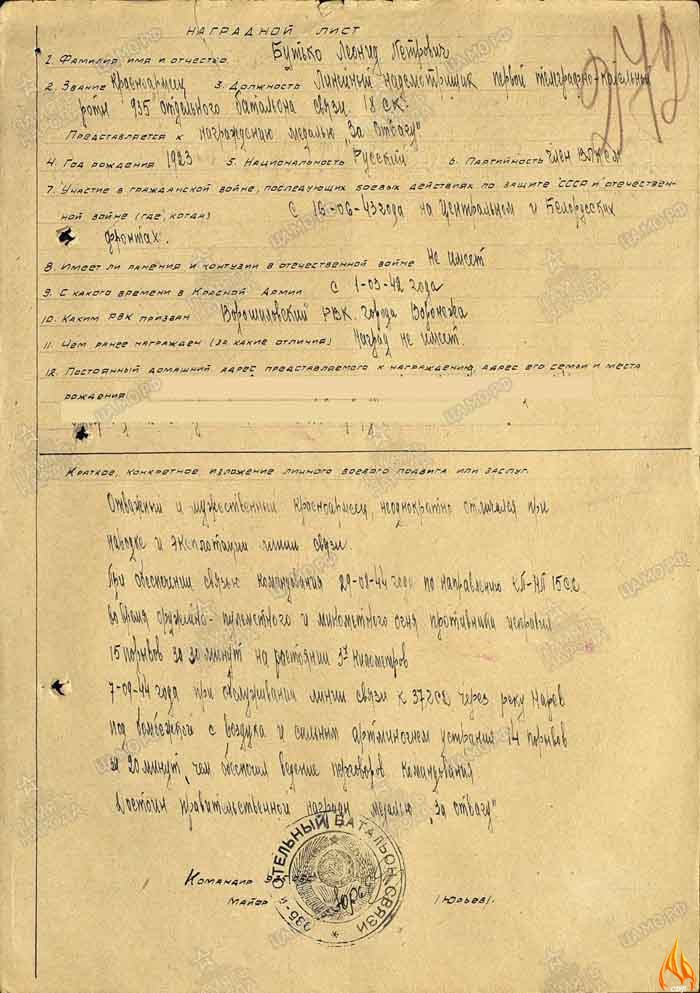 НАГРАДНОЙ ЛИСТ
272
1. Фамилия имя и отчество Бутько Леонид Петрович
2. Звание Красноармеец 3. Должность Линейный надсмотрщик первой телеграфно-кабельной
роты 935 отдельного баталиона связи 18 СК.
Представляется к награждению медалью "За Отвагу"
4. Год рождения 1923 5. Национальность Русский 6. Партийность член ВЛКСМ
7. Участие в гражданской войне, последующих боевых действиях по защите СССР и отечествен-
ной войне (где, когда) С 16-06-43 года на Центральном и Белорусских
фронтах.
8. Имеет ли ранения и контузии в отечественной войне Не имеет
9. С какого времени в Красной Армии С 1-03-42 года
10. Каким РВК призван Ворошиловский РВК города Воронежа
11. Чем ранее награжден (за какие отличия) Наград не имеет.
12. Постоянный домашний адрес представляемого к награждению, адрес его семьи и места
рождения
Краткое, конкретное изложение личного боевого подвига или заслуг.
Отважный и мужественный красноармеец, неоднократно отличался при
наводке и эксплотации линии связи.
При обеспечении связью командования 29-08-44 года по направлению КП-НП 15СД
во время оружейно-пулеметного и минометного огня противника исправил
15 порывов за 30 минут на растоянии 3х километров
7-09-44 года при обслуживании линии связи к 37ГСД через реку Нарев
под бомбежкой с воздуха и сильным артминогнем устранил 14 порывов
за 20 минут, чем обеспечил ведение переговоров командования
Достоин правительственной награды медалью "За отвагу"
Командир 935
Майор (Юрьев).
935-й ОТДЕЛЬНЫЙ БАТАЛЬОН СВЯЗИ
ЦАМО.РФ